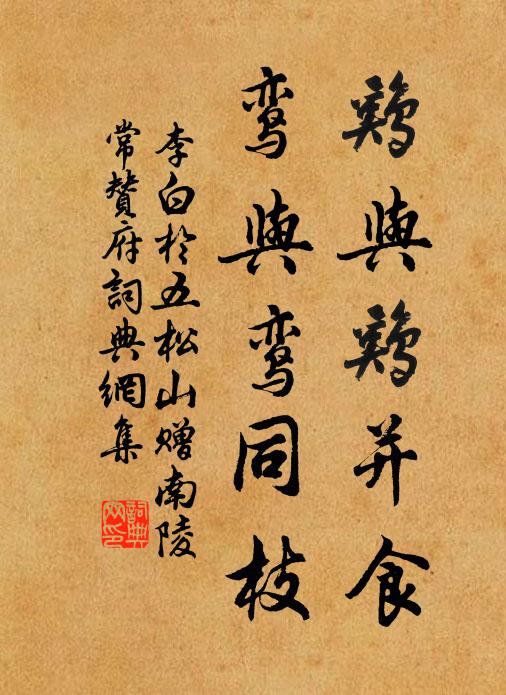 鷄與鷄并食
鸾與鸾同枝
李白於五松山赠南陵
常贊府詞典網集
詞典
网印